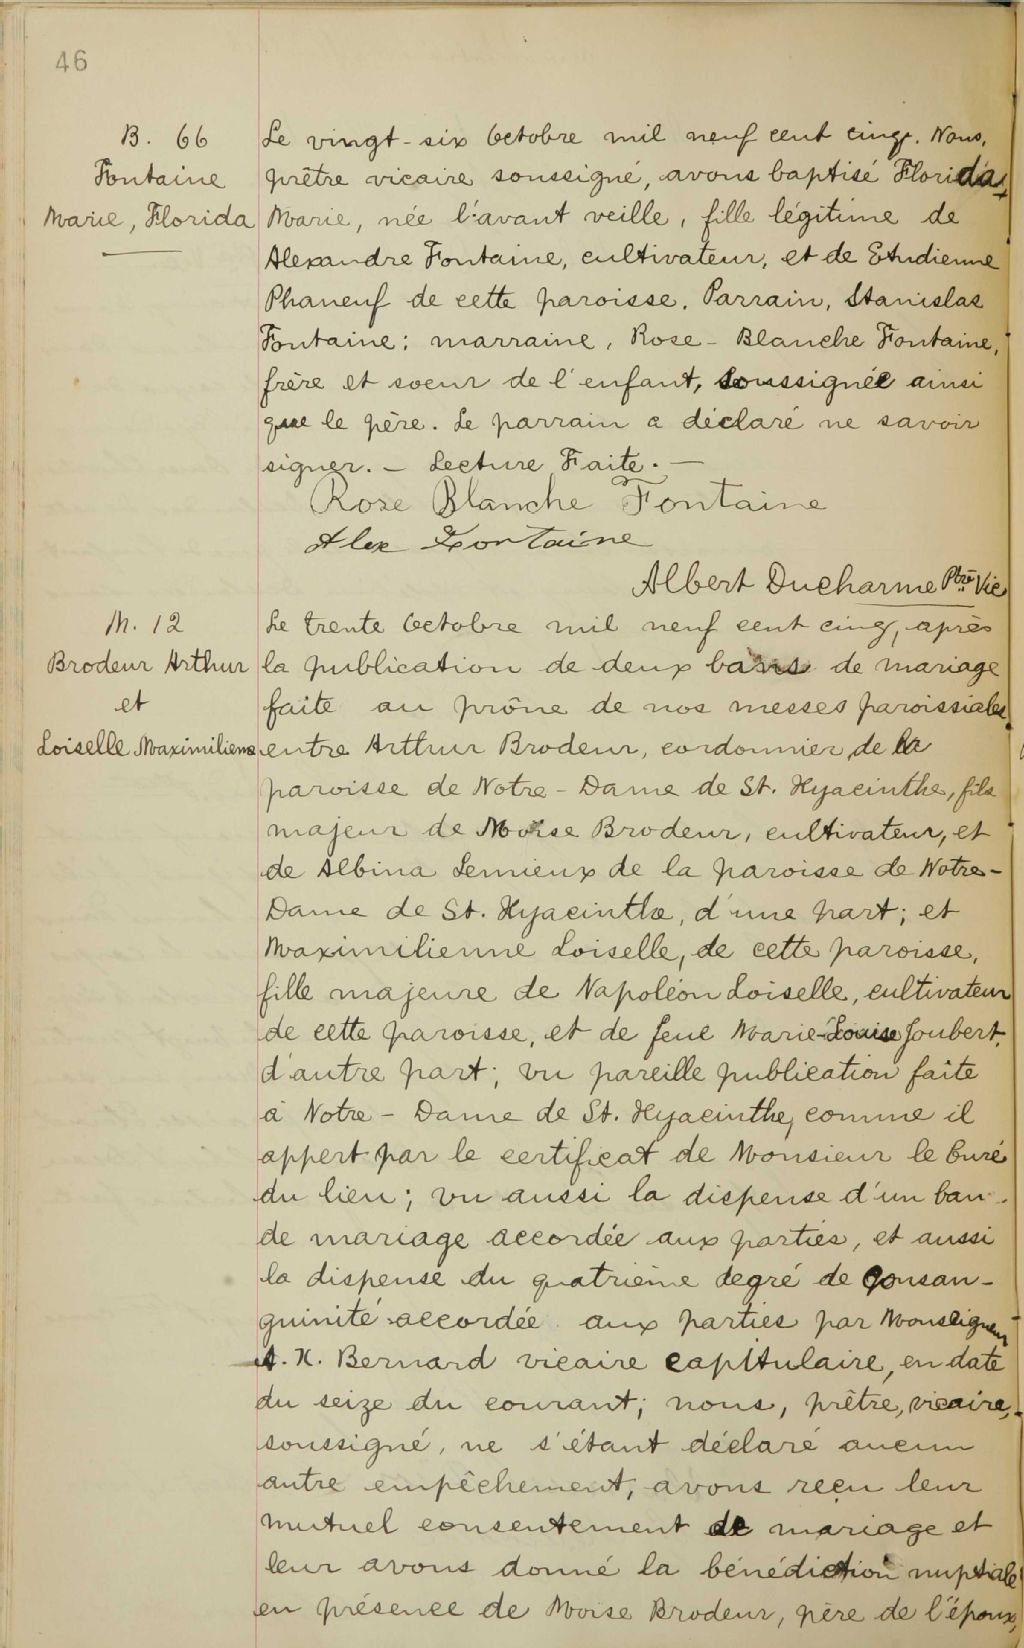 46
B. 66
Fontaine
Marie, Florida
Le vingt-six Octobre mil neuf cent cinq. Nous,
prêtre vicaire soussigné, avons baptisé Florida
Marie, née l'avant veille, fille légitime de
Alexandre Fontaine, cultivateur, et de Etudienne
Phaneuf de cette paroisse. Parrain, Stanislas
Fontaine; marraine, Rose-Blanche Fontaine,
frère et soeur de l'enfant, soussignée ainsi
que le père. Le parrain a déclaré ne savoir
signer. - Lecture Faite. -
Rose Blanche Fontaine
Alex Fontaine
Albert Ducharme Ptre Vic
M. 12
Brodeur Arthur
et
Loiselle Maximilienne
Le trente Octobre mil neuf cent cinq, après
la publication de deux bans de mariage
faite au prône de nos messes paroissiales
entre Arthur Brodeur, cordonnier, de la
paroisse de Notre-Dame de St. Hyacinthe, fils
majeur de Moise Brodeur, cultivateur, et
de Albina Lemieux de la paroisse de Notre-
Dame de St. Hyacinthe, d'une part; et
Maximilienne Loiselle, de cette paroisse,
fille majeure de Napoléon Loiselle, cultivateur
de cette paroisse, et de feue Marie-Louise Joubert,
d'autre part; vu pareille publication faite
à Notre-Dame de St. Hyacinthe, comme il
appert par le certificat de Monsieur le Curé
du lieu; vu aussi la dispense d'un ban
de mariage accordée aux parties, et aussi
la dispense du quatrième degré de consan-
guinité accordée aux parties par Monseigneur
A. X. Bernard vicaire capitulaire, en date
du seize du courant; nous, prêtre, vicaire,
soussigné, ne s'étant déclaré aucun
autre empêchement, avons reçu leur
mutuel consentement de mariage et
leur avons donné la bénédiction nuptiale
en présence de Moise Brodeur, père de l'époux,